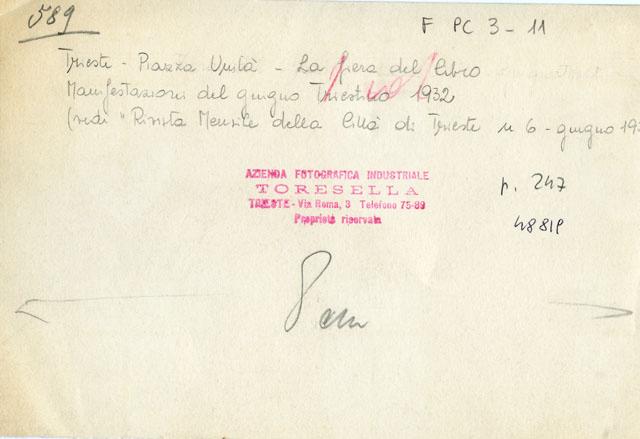 589
F PC 3 - 11
Trieste - Piazza Unità - La fiera del libro
Manifestazioni del giugno Triestino 1932
(vedi "Rivista Mensile della Città di Trieste n 6 - giugno 193
AZIENDA FOTOGRAFICA INDUSTRIALE
TORESELLA
TRIESTE - Via Roma, 3 Telefono 75-89
Proprietà riservata
p. 247
48819
8 cm